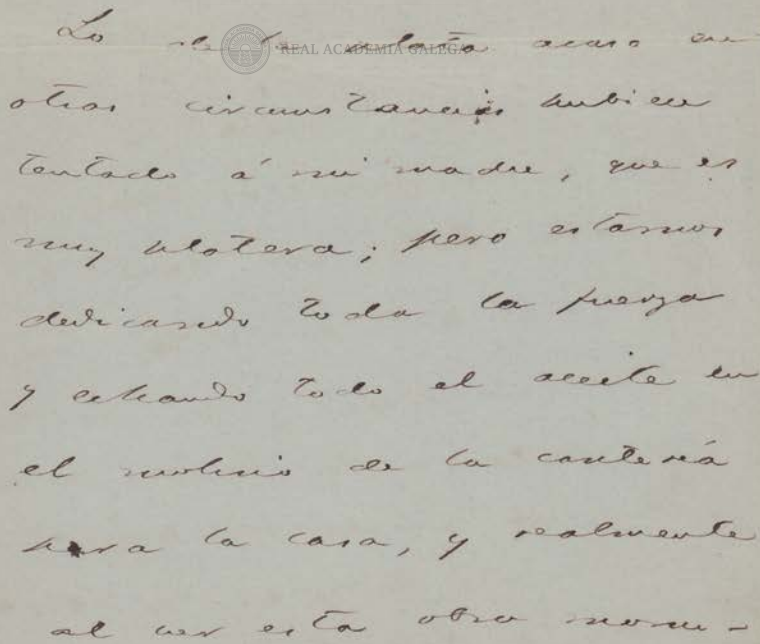 Lo de la plata acaso en
REAL ACADEMIA GALEGA
otras circunstancias hubiera
tentado á mi madre, que es
muy platera; pero estamos
dedicando toda la fuerza
y echando todo el aceite en
el molino de la cantería
para la casa, y realmente
al ver esta obra monu-